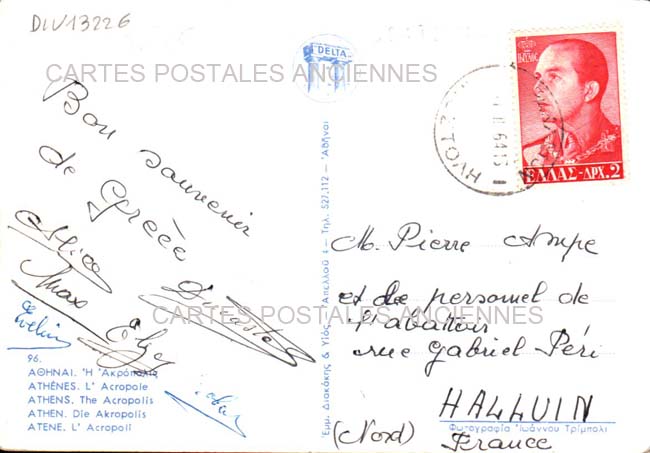 DIV13226
DELTA
CARTES POSTALES ANCIENNES
Bon souvenir
de Grèce
Max
Evelin
CARTES POSTALES ANCIENNES
96.
ΑΘΗΝΑΙ. Ἡ Ἀκρόπολις
ATHÉNES. L' Acropole
ATHENS. The Acropolis
ATHEN. Die Akropolis
ATENE. L' Acropoli
Ἐμμ. Διακάκης & Υἱός - Ἀπελλοῦ 1 - Τηλ. 527.112 - Ἀθῆναι
ΠΑΥΛΟΣ
ΕΛΛΑΣ-ΔΡΧ. 2
M. Pierre Ampe
et de personnel de
l'abattoir
rue Gabriel Péri
HALLUIN
Φωτογραφία Ἰωάννου Τρίμπολι
(Nord) France